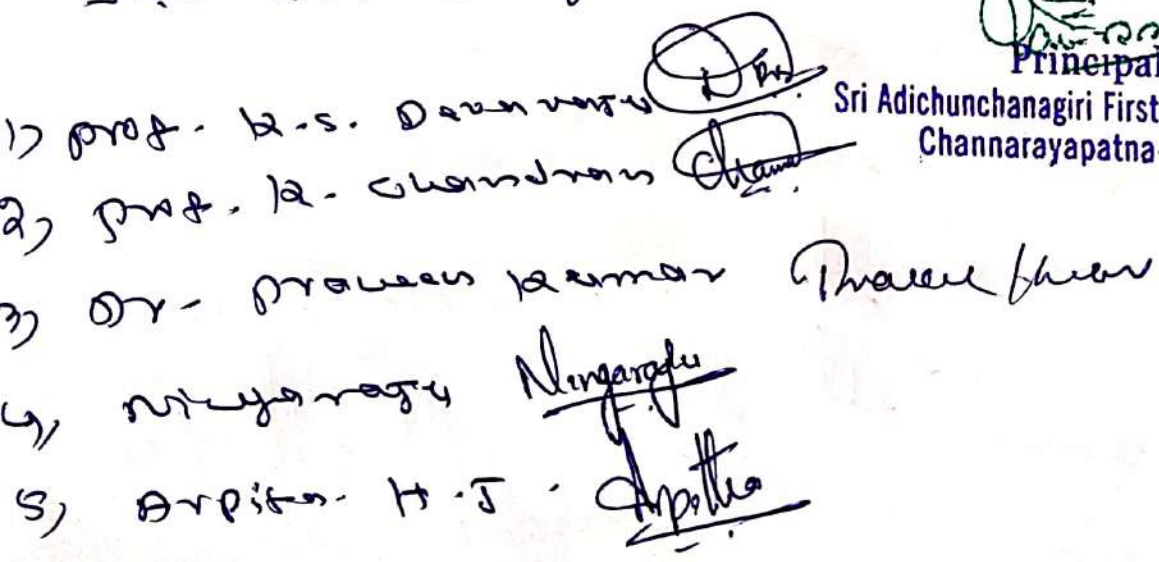 Principal
Sri Adichunchanagiri First
Channarayapatna-
1) prof. K.S. Devaraju
2) prof. K. Chandran
3) Dr- praveen Kumar Praveen Kumar
4) Ningaraju Ningaraju
5) Arpita. H.J. Arpitha